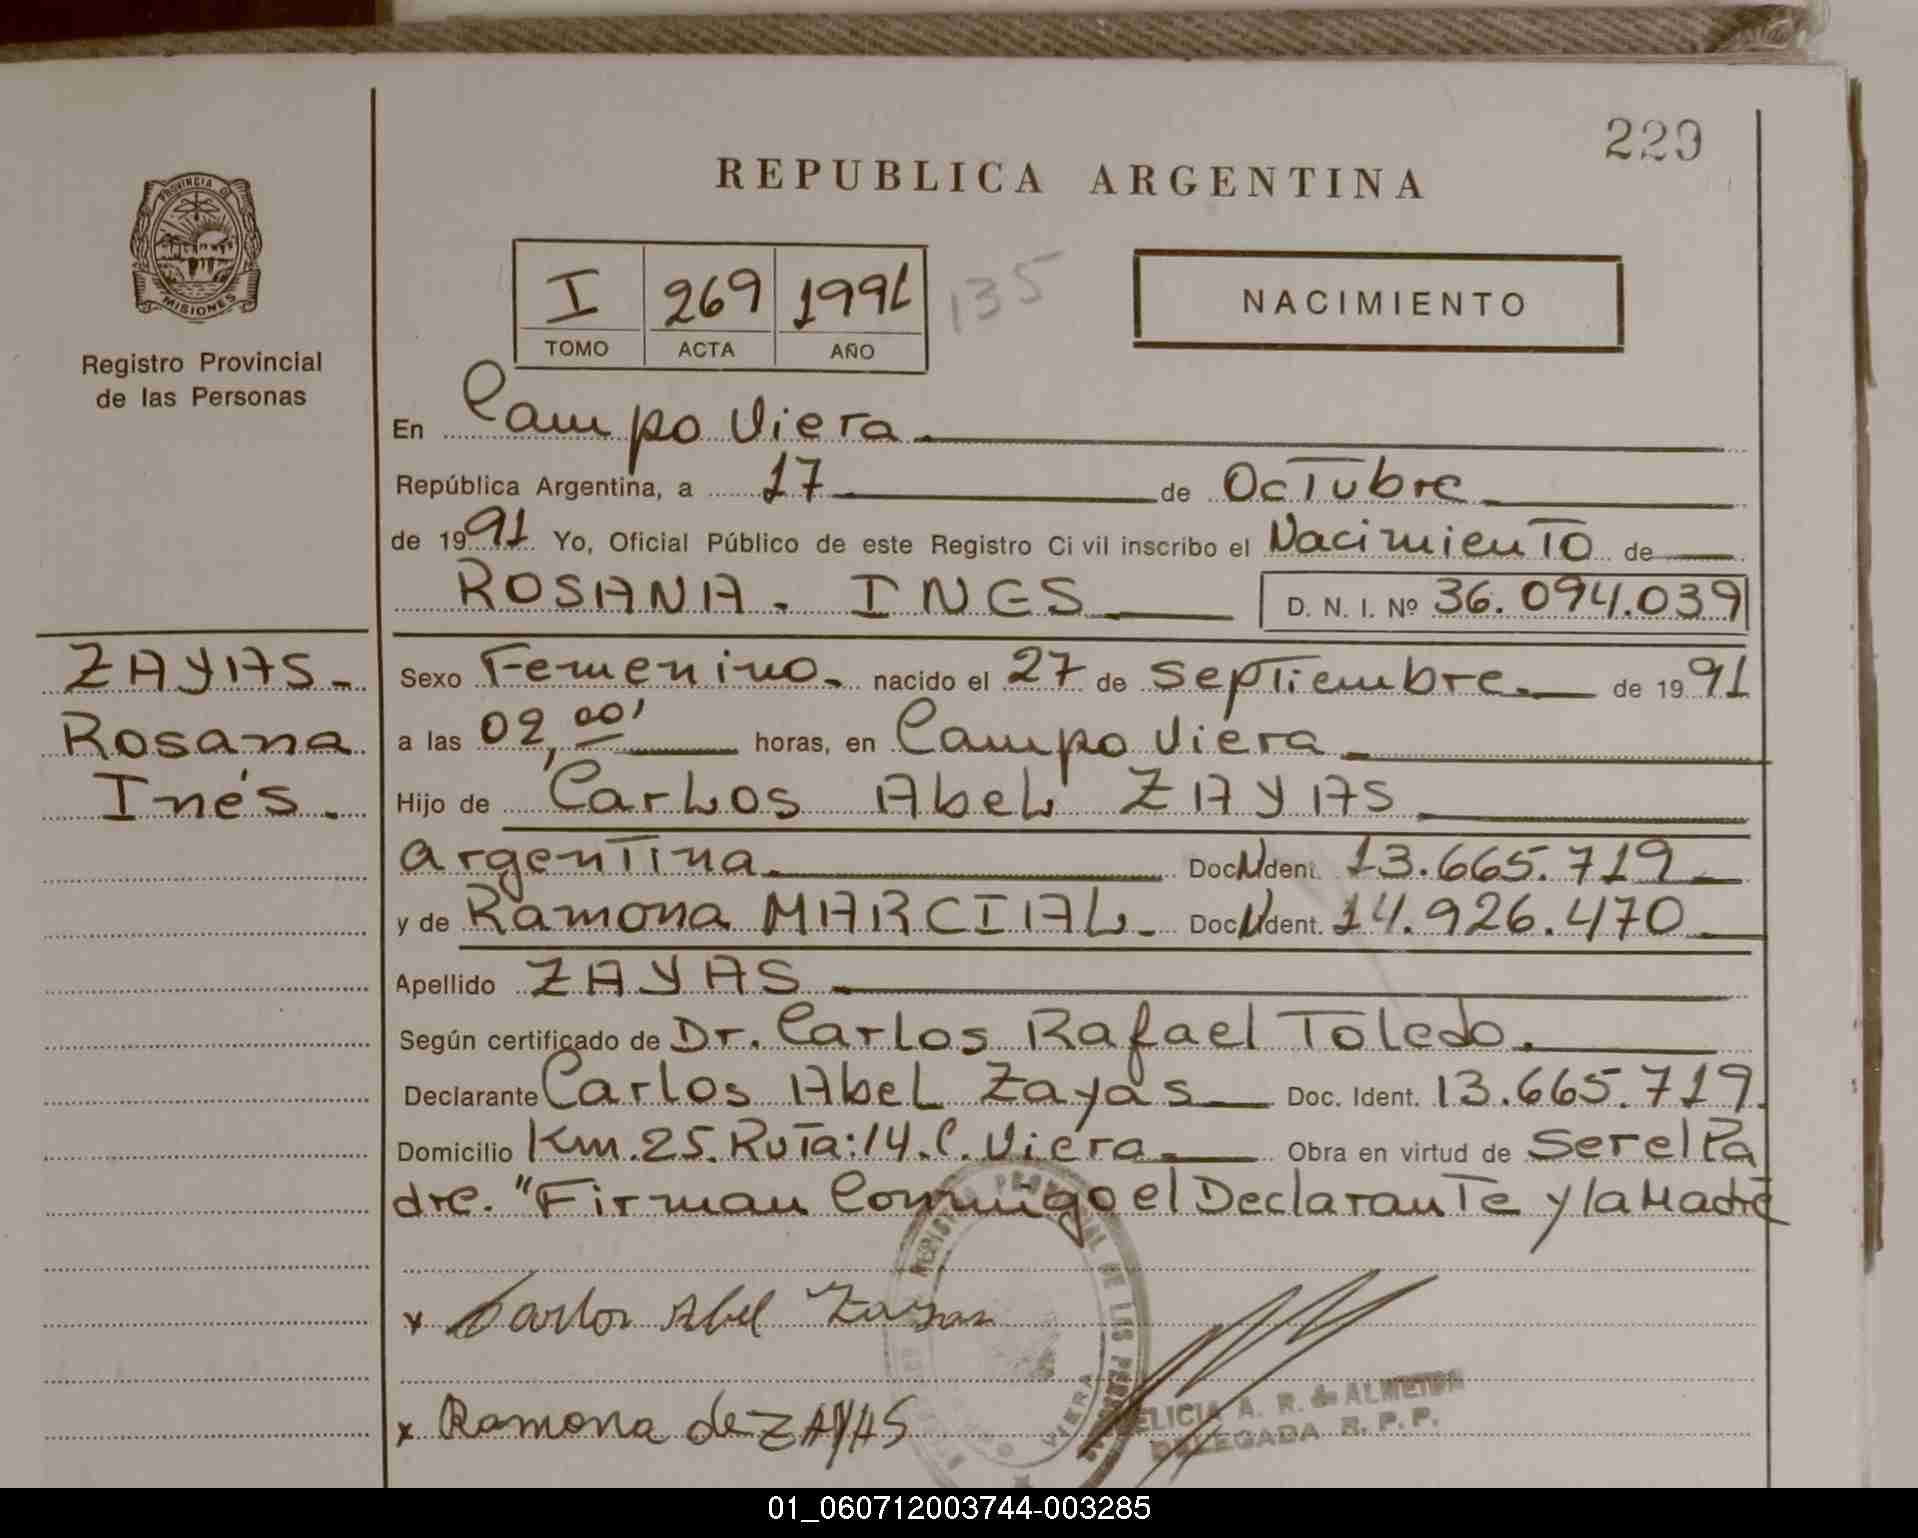 229
REPUBLICA ARGENTINA
PROVINCIA D
MISIONES
Registro Provincial
de las Personas
I 269 1991 135
TOMO ACTA AÑO
NACIMIENTO
En Campo Viera
República Argentina, a 17 de Octubre
de 1991 Yo, Oficial Público de este Registro Civil inscribo el Nacimiento de
ROSANA. INES D. N. I. Nº 36.094.039
ZAYAS.
Rosana
Inés.
Sexo Femenino. nacido el 27 de septiembre. de 1991
a las 02,00' horas, en Campo Viera
Hijo de Carlos Abel ZAYAS
argentina Doc. Ident. 13.665.719
y de Ramona MARCIAL Doc. Ident. 14.926.470
Apellido ZAYAS
Según certificado de Dr. Carlos Rafael Toledo.
Declarante Carlos Abel Zayas Doc. Ident. 13.665.719.
Domicilio Km.25.Ruta:14.C.Viera Obra en virtud de ser el Pa
dre. "Firman Comigo el Declarante y la Madre
x Carlos Abel Zayas
x Ramona de ZAYAS
REGISTRO PROVINCIAL DE LAS PERSONAS
VIERA
ELICIA A. R. de ALMEIDA
DELEGADA R. P. P.
01_060712003744-003285